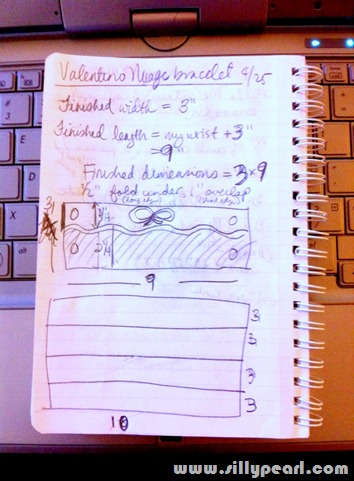 Valentino Nuage bracelet 4/25
Finished width = 3"
Finished length = my wrist + 3"
= 9"
Finished dimensions = 3 x 9
1/2" fold under, 1" overlap
(long edge) (short edge)
0 3/4 0
0 2 1/4 0
9
3
3
3
3
10
www.sillypearl.com